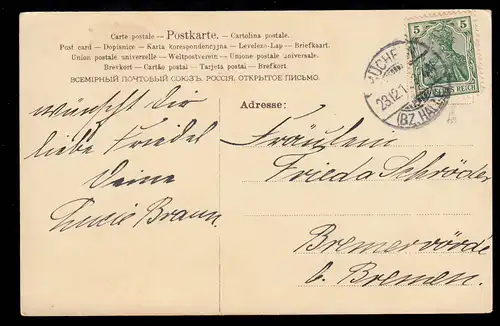 Carte postale – Postkarte. – Cartolina postale
Post card – Dopisnice – Karta korespondencyjna – Levelező-Lap – Briefkaart.
Union postale universelle – Weltpostverein – Unione postale universale.
Brevkort – Cartão postal – Tarjeta postal – Brefkort.
ВСЕМІРНЫЙ ПОЧТОВЫЙ СОЮЗЪ. РОССІЯ. ОТКРЫТОЕ ПИСЬМО.
5 5
REICH
MÜCHE
23.12.1
(BZ. HALLE
wünscht Dir
liebe Friedel
Deine
Lucie Braun.
Adresse:
Fräulein
Frieda Schröder
Bremervörde
b. Bremen.